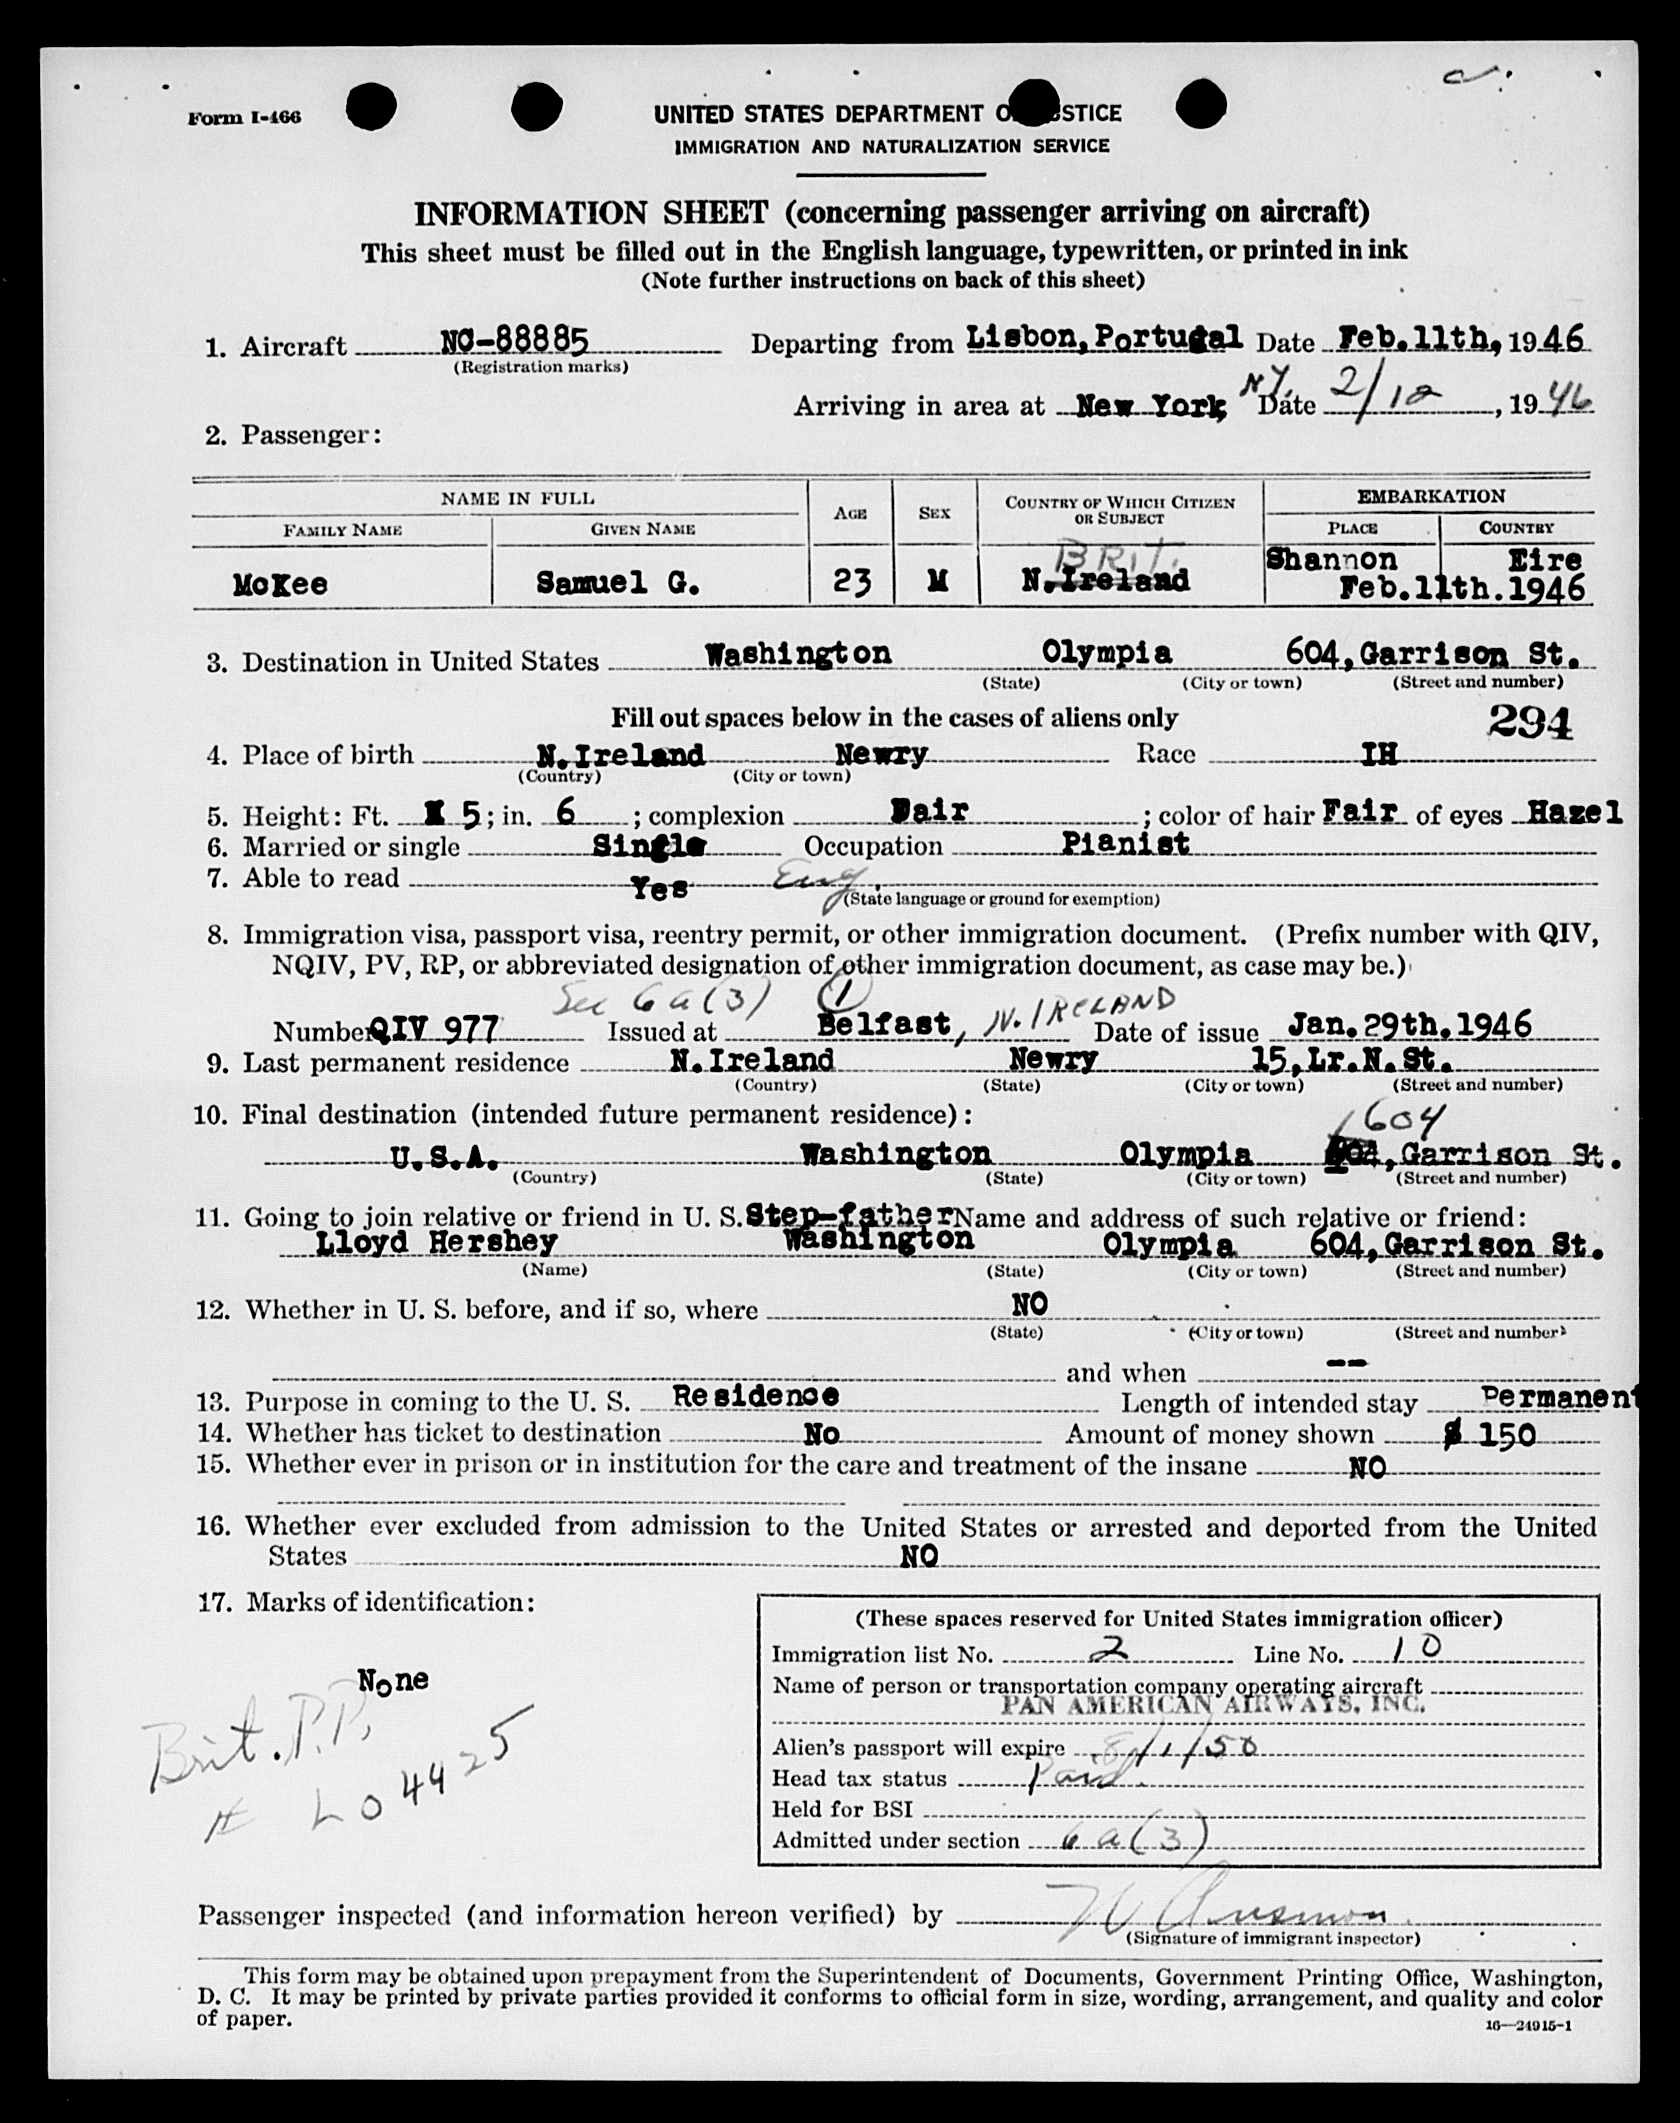 Form I-466
UNITED STATES DEPARTMENT OF JUSTICE
IMMIGRATION AND NATURALIZATION SERVICE
INFORMATION SHEET (concerning passenger arriving on aircraft)
This sheet must be filled out in the English language, typewritten, or printed in ink
(Note further instructions on back of this sheet)
1. Aircraft NC-88885 Departing from Lisbon, Portugal Date Feb.11th, 1946
(Registration marks)
Arriving in area at New York, N.Y. Date 2/12, 1946
2. Passenger:
NAME IN FULL AGE SEX COUNTRY OF WHICH CITIZEN OR SUBJECT EMBARKATION
FAMILY NAME GIVEN NAME PLACE COUNTRY
BRIT. Shannon Eire
McKee Samuel G. 23 M N.Ireland Feb.11th.1946
3. Destination in United States Washington Olympia 604, Garrison St.
(State) (City or town) (Street and number)
Fill out spaces below in the cases of aliens only 294
4. Place of birth N.Ireland Newry Race IH
(Country) (City or town)
5. Height: Ft. 5; in. 6; complexion Fair; color of hair Fair of eyes Hazel
6. Married or single Single Occupation Pianist
7. Able to read Yes Eng.
(State language or ground for exemption)
8. Immigration visa, passport visa, reentry permit, or other immigration document. (Prefix number with QIV,
NQIV, PV, RP, or abbreviated designation of other immigration document, as case may be.)
Sec 6a(3) 1
Number QIV 977 Issued at Belfast, N. IRELAND Date of issue Jan.29th.1946
9. Last permanent residence N.Ireland Newry 15, Lr.N.St.
(Country) (State) (City or town) (Street and number)
10. Final destination (intended future permanent residence):
604
U.S.A. Washington Olympia 604, Garrison St.
(Country) (State) (City or town) (Street and number)
11. Going to join relative or friend in U. S. Step-father Name and address of such relative or friend:
Lloyd Hershey Washington Olympia 604, Garrison St.
(Name) (State) (City or town) (Street and number)
12. Whether in U. S. before, and if so, where NO
(State) (City or town) (Street and number)
and when --
13. Purpose in coming to the U. S. Residence Length of intended stay Permanent
14. Whether has ticket to destination No Amount of money shown $ 150
15. Whether ever in prison or in institution for the care and treatment of the insane NO
16. Whether ever excluded from admission to the United States or arrested and deported from the United
States NO
17. Marks of identification:
None
Brit. P.P.
# L04425
(These spaces reserved for United States immigration officer)
Immigration list No. 2 Line No. 10
Name of person or transportation company operating aircraft
PAN AMERICAN AIRWAYS, INC.
Alien's passport will expire 8/1/50
Head tax status Paid.
Held for BSI
Admitted under section 6a(3)
Passenger inspected (and information hereon verified) by
(Signature of immigrant inspector)
This form may be obtained upon prepayment from the Superintendent of Documents, Government Printing Office, Washington,
D. C. It may be printed by private parties provided it conforms to official form in size, wording, arrangement, and quality and color
of paper.
16—24915-1